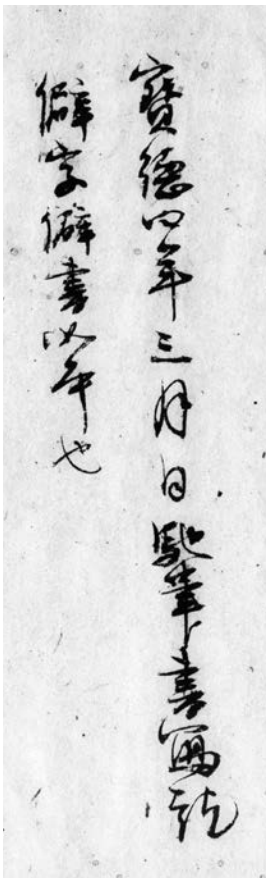 寳徳四年三月日馳筆書寫訖
僻字僻書以年也